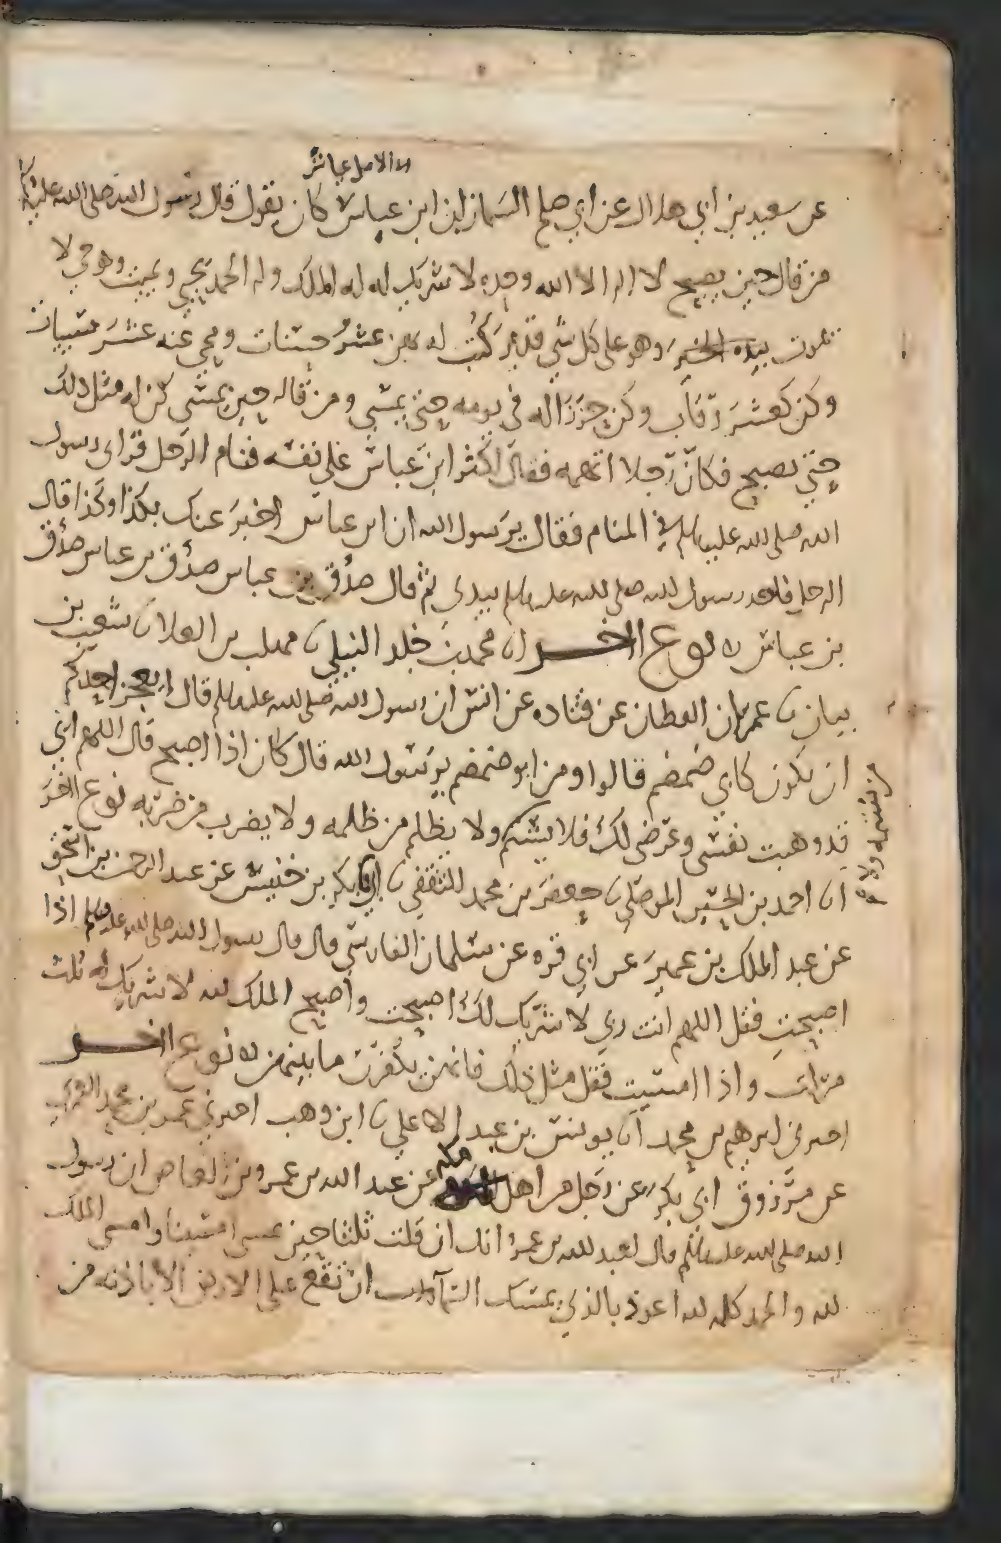 عن سعيد بن ابي هلال عن ابي صلح السمان ان ابن عباس كان يقول قال رسول الله صلى الله عليه
من قال حين يصبح لا اله الا الله وحده لا شريك له له الملك وله الحمد يحيي ويميت وهو حي لا
يموت بيده الخير وهو على كل شي قدير كتب له بهن عشر حسنات ومحي عنه عشر سيات
وكن كعشر رقاب وكن حرزا له في يومه حتى يمسي ومن قاله حين يمسي كن له مثل ذلك
حتى يصبح فكان رجلا اتهمه فقال اكثر ابن عباس على نفسه فنام الرجل فراى رسول
الله صلى الله عليه وسلم في المنام فقال يرسول الله ان ابن عباس اخبر عنك بكذا وكذا قال
الرجل فاخذ رسول الله صلى الله عليه وسلم بيدي ثم قال صدق بن عباس صدق بن عباس صدق
بن عباس نوع اخر محمد بن خلد النيلي مهلب بن العلا شعيب بن
بيان عمران القطان عن قتاده عن انس ان رسول الله صلى الله عليه وسلم قال ايعجز احدكم
ان يكون كابي ضمضم قالوا ومن ابو ضمضم يرسول الله قال كان اذا اصبح قال اللهم اني
قد وهبت نفسي وعرضي لك فلا يشتم ولا يظلم من ظلمه ولا يضرب من ضربه نوع اخر
من شتمه ولا
احمد بن الحسين الموصلي جعفر بن محمد الثقفي بكر بن خنيس عن عبد الرحمن بن اسحق
عن عبد الملك بن عمير عن ابي قره عن سلمان الفارسي قال قال رسول الله صلى الله عليه وسلم اذا
اصبحت فقل اللهم انت ربي لا شريك لك اصبحت واصبح الملك لله لا شريك له ثلث
مرات واذا امسيت فقل مثل ذلك فانهن يكفرن ما بينهن نوع اخر
اخبرني ابرهيم بن محمد يونس بن عبد الاعلى ابن وهب اخبرني عمر بن محمد
عن مرزوق ابي بكر عن رجل من اهل مكه عن عبد الله بن عمرو بن العاص ان رسول
الله صلى الله عليه وسلم قال لعبد الله بن عمرو انك ان قلت ثلثا حين تمسي امسينا وامسى الملك
لله والحمد كله لله اعوذ بالذي يمسك السماوات ان تقع على الارض الا باذنه من